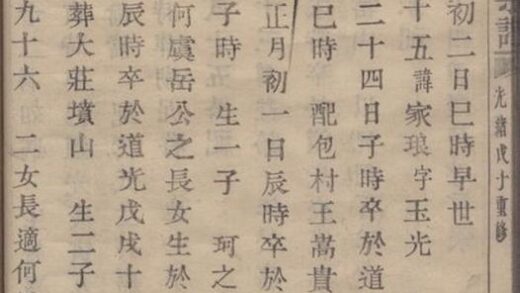 光緒戊子重修
初二日巳時早世
十五諱家琅字玉光
二十四日子時卒於道
巳時 配包村王嵩貴
正月初一日辰時卒於
子時 生一子 珂之
何虞岳公之長女生於
辰時卒於道光戊戌十
葬大莊墳山 生二子
九十六 二女長適何